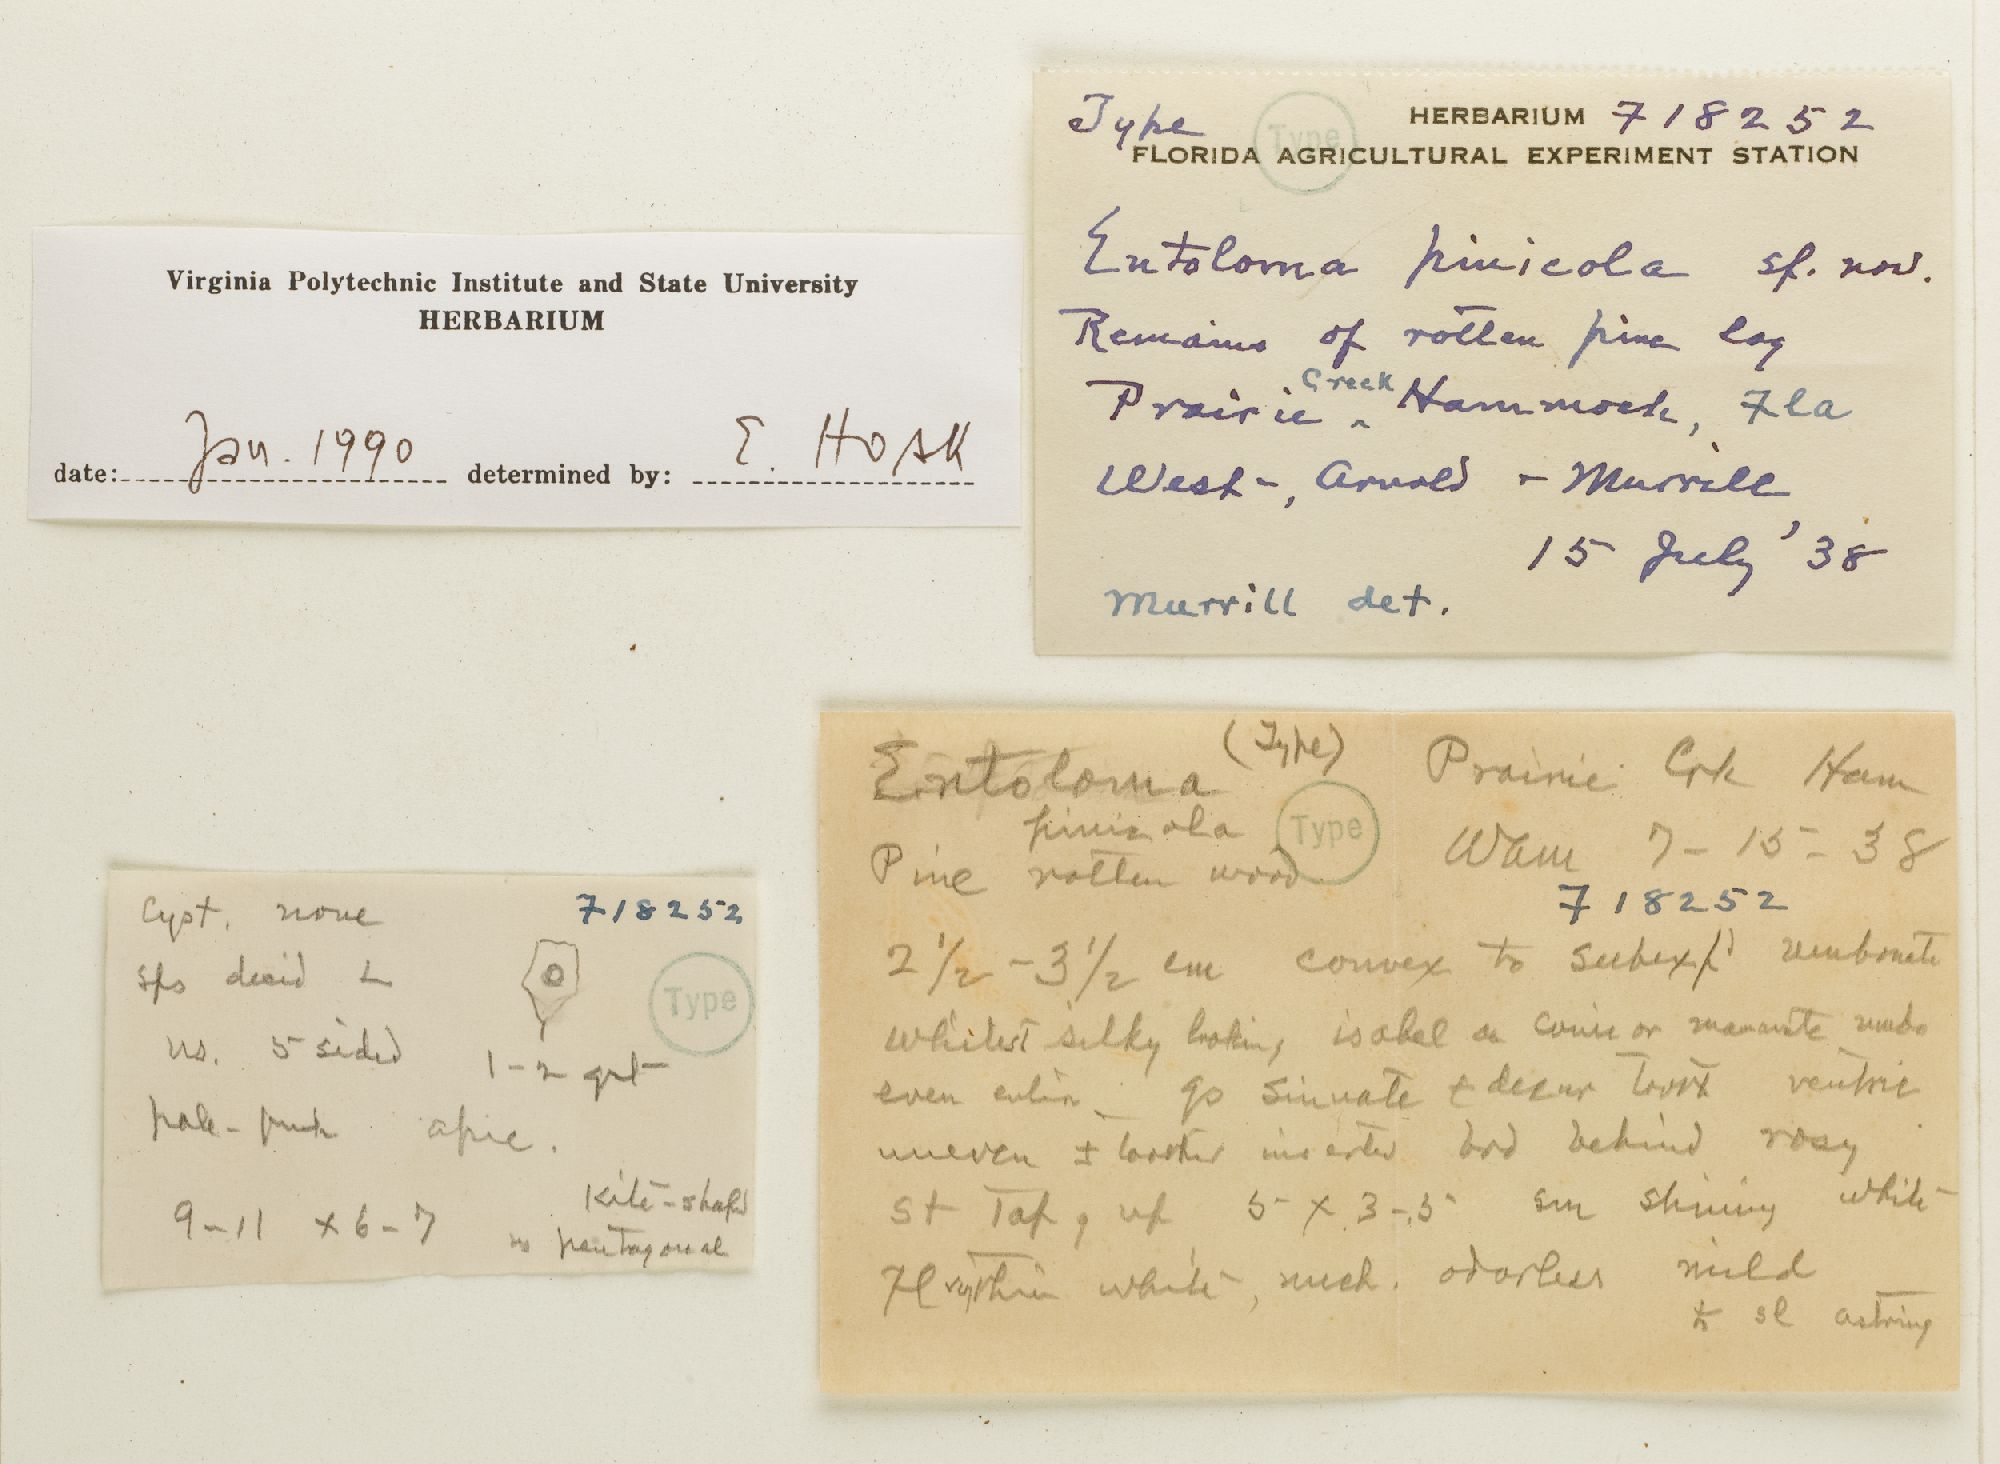 Virginia Polytechnic Institute and State University
HERBARIUM
date: Jan. 1990 determined by: E. Horak
Type Type HERBARIUM 718252
FLORIDA AGRICULTURAL EXPERIMENT STATION
Entoloma pinicola sp. nov.
Remains of rotten pine log
Prairie ^ Creek Hammock, Fla
West, Arnold - Murrill
15 July '38
Murrill det.
Cyst. none 718252
sps decid
us. 5 sided Type
1-2 gut
pale-pink apic.
Kite-shapd
9-11 x 6-7
pentagonal
Entoloma (Type) Prairie Crk Ham
pinicola Type
Pine rotten wood
WAM 7-15-38
718252
2 1/2 - 3 1/2 cm convex to subexp umbonate
whitest silky looking isabel on
even entire sinuate ± decur tooth ventric
uneven ± inserted brd behind rosy
st tap up 5 x 3-.5 sm shining white
Fl thin white, odorless mild
to sl astring